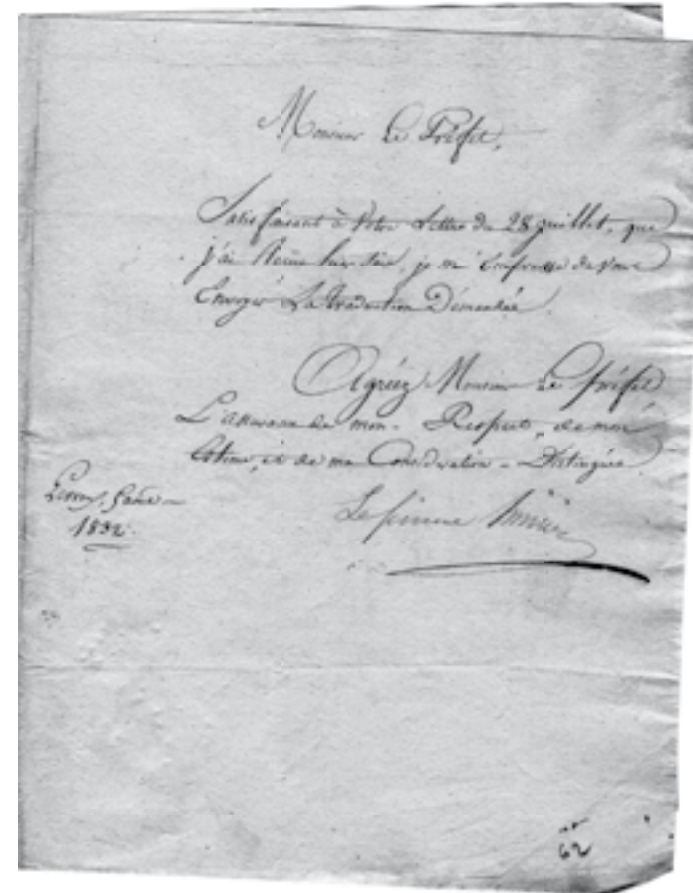 Monsieur Le Préfet,
Satisfaisant à Votre Lettre du 28 juillet, que
j'ai Recue hier Soir, je m'Empresse de Vous
Envoyer La traduction Demandée.
Agréez Monsieur Le préfet
L'assurance de mon Respect, de mon
Estime, et de ma Considération Distinguée
1832.
62